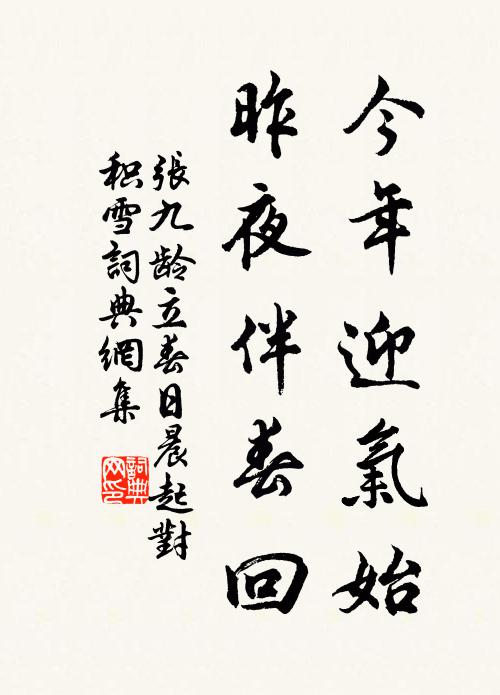 今年迎氣始
昨夜伴春回
張九龄立春日晨起對
积雪詞典網集
詞典
网印